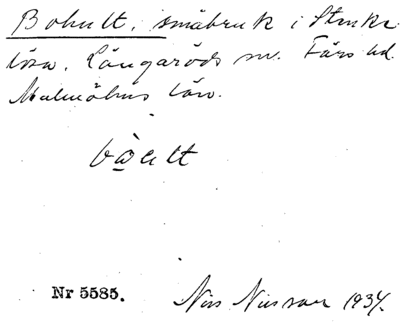 Bohult, småbruk i Starke
lösa. Långaröds sn. Färs hd.
Malmöhus län.
Nr 5585.
Nils Nilsson 1934.